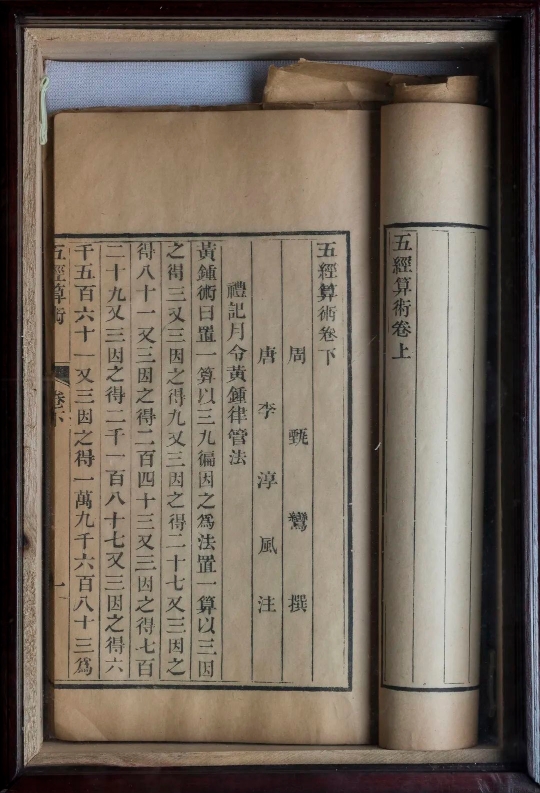 五經算術卷上
五經算術卷下
周甄鸞撰
唐李淳風注
禮記月令黃鍾律管法
黃鍾術曰置一算以三九徧因之爲法置一算以三因
之得三又三因之得九又三因之得二十七又三因之
得八十一又三因之得二百四十三又三因之得七百
二十九又三因之得二千一百八十七又三因之得六
千五百六十一又三因之得一萬九千六百八十三爲
五經算術
卷下
一